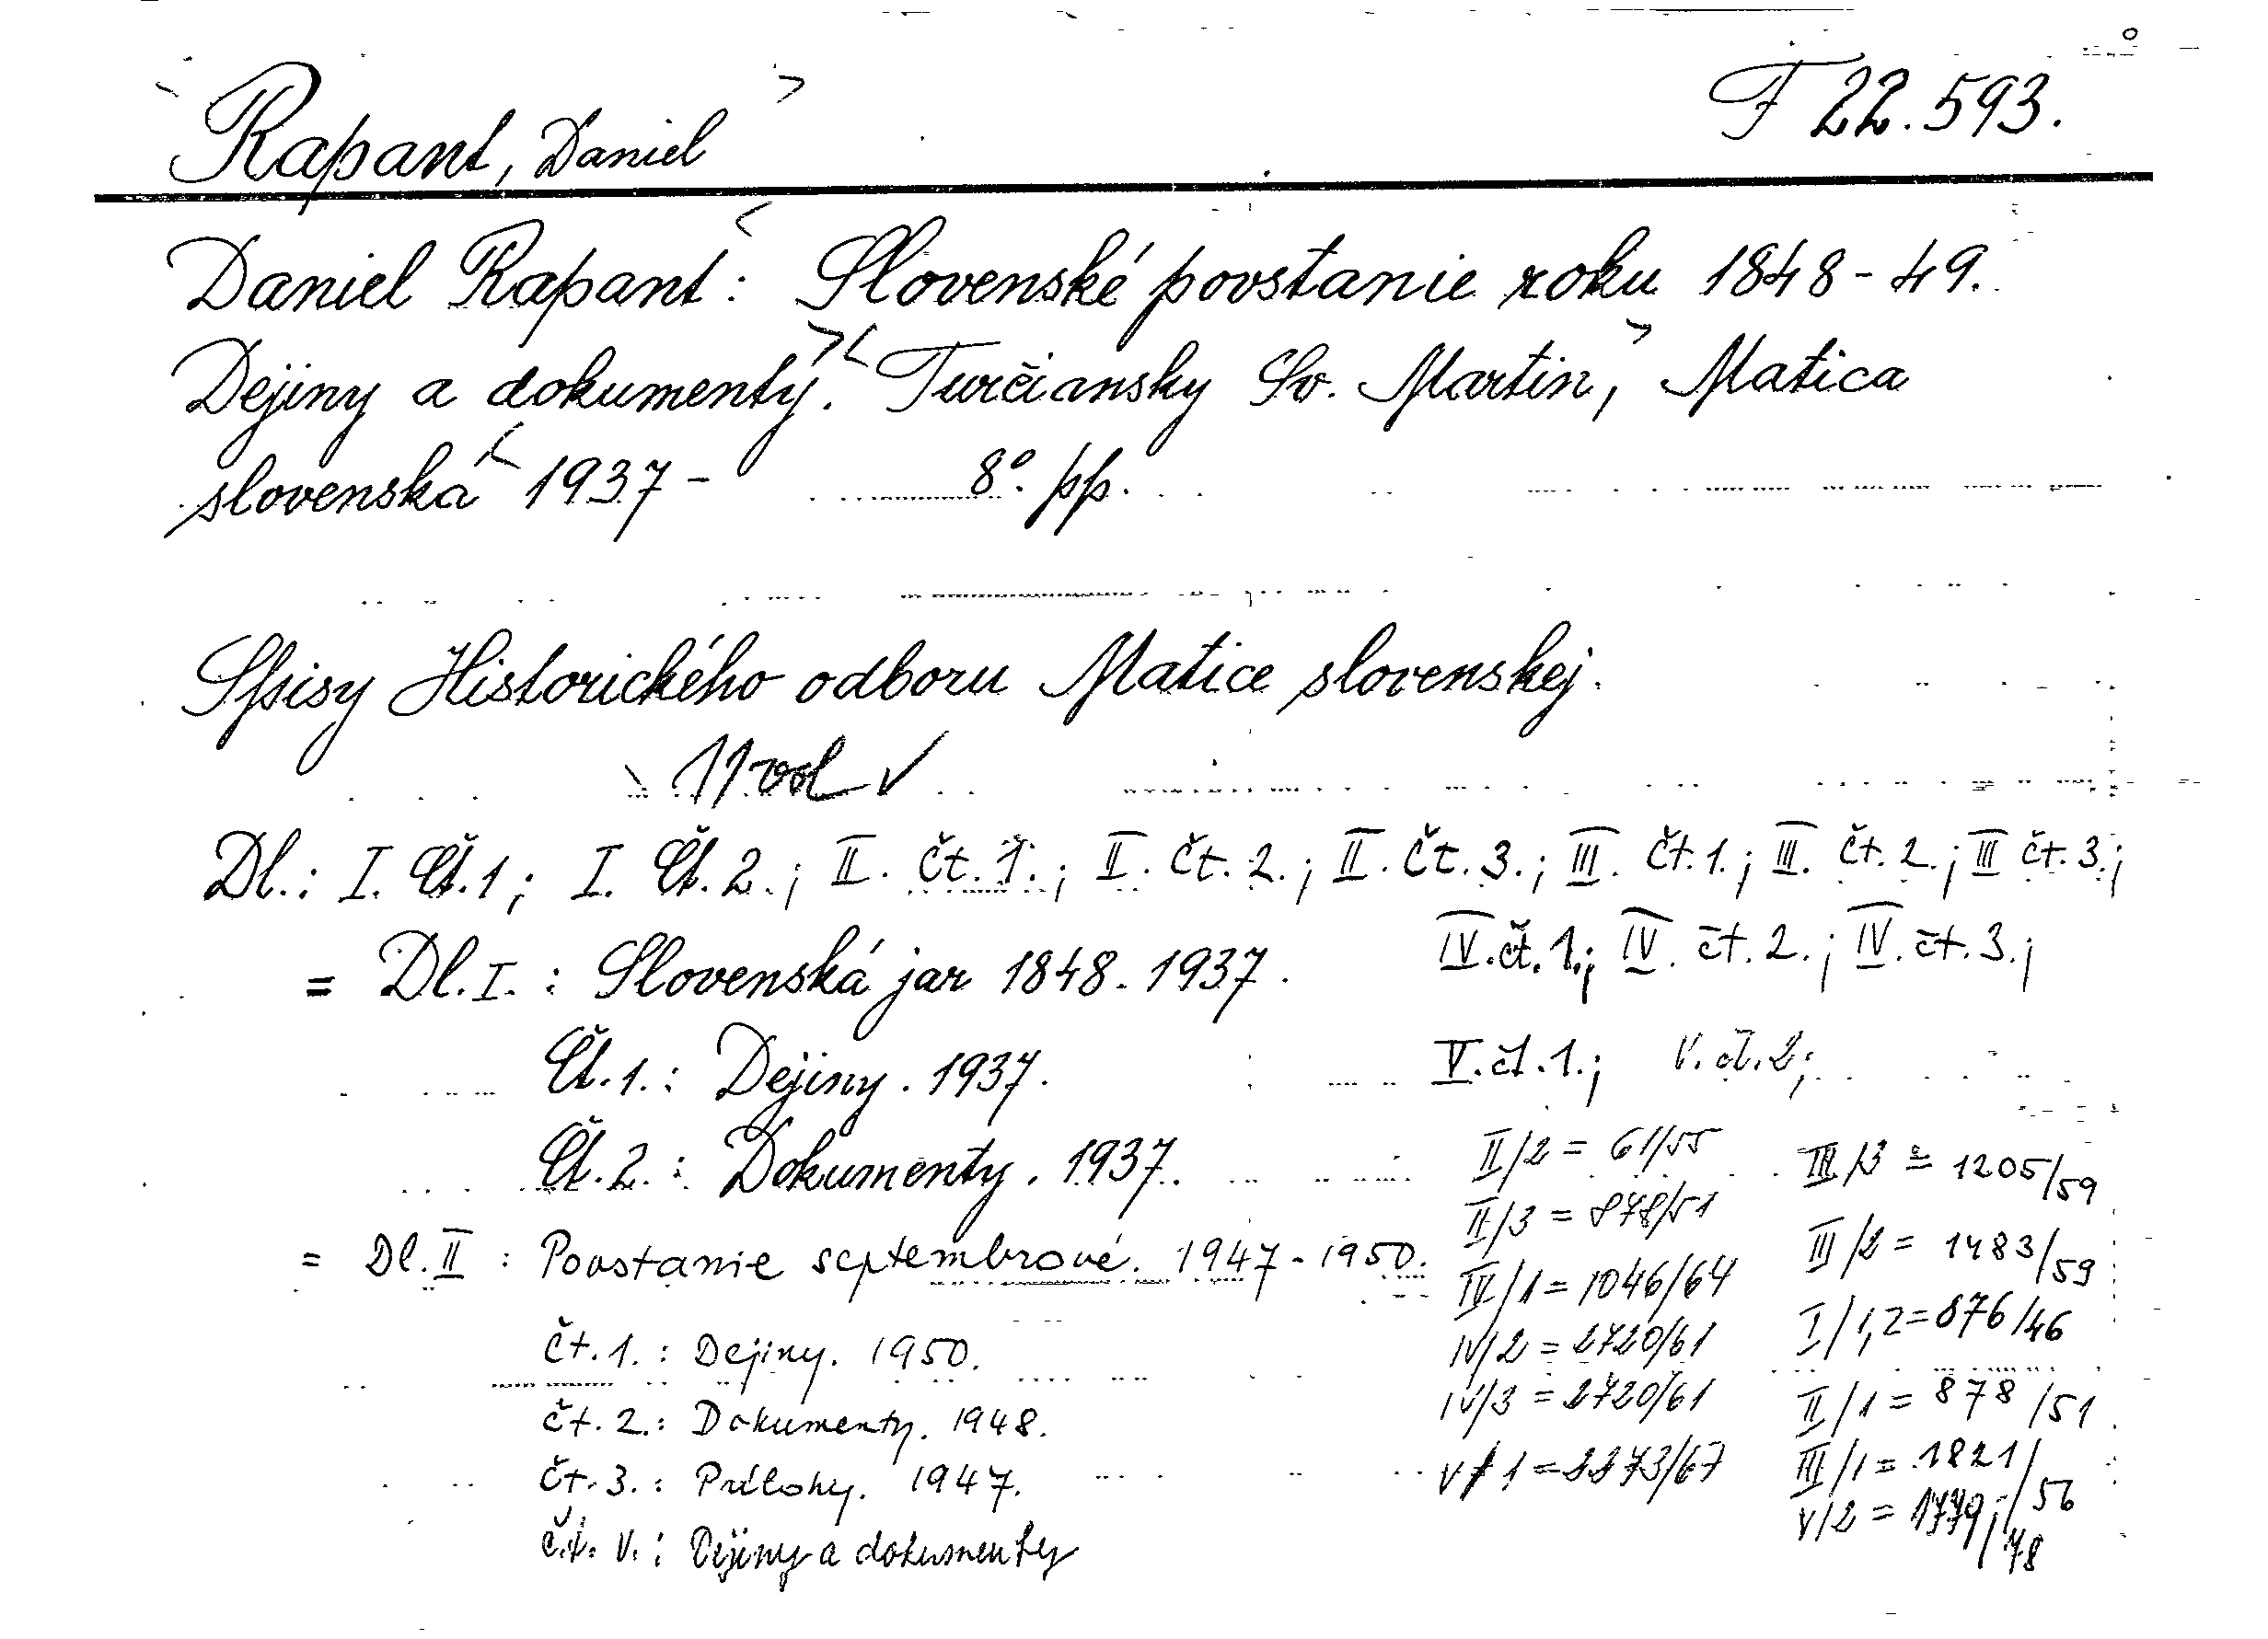 Rapant, Daniel
F 22.593.
Daniel Rapant: Slovenské povstanie roku 1848-49.
Dejiny a dokumenty. Turčiansky Sv. Martin, Matica
slovenská 1937- 8°. pp.
Spisy Historického odboru Matice slovenskej.
11 vol ✓
Dl.: I. Čt.1; I. Čt. 2.; II. Čt. 1.; II. Čt. 2.; II. Čt. 3.; III. Čt.1.; III. Čt. 2.; III čt. 3.;
IV. čt. 1.; IV. čt. 2.; IV. čt. 3.;
= Dl. I. : Slovenská jar 1848. 1937.
Čt. 1. : Dejiny. 1937.
V. čt. 1.; V. čt. 2;
Čt. 2. : Dokumenty. 1937.
= Dl. II : Povstanie septembrové. 1947-1950.
čt. 1. : Dejiny. 1950.
čt. 2. : Dokumenty. 1948.
čt. 3. : Prílohy. 1947.
čt. V. : Dejiny a dokumenty
II/2 = 61/55
II/3 = 878/51
IV/1 = 1046/64
IV/2 = 2720/61
IV/3 = 2720/61
V/1 = 2273/67
III/3 = 1205/59
III/2 = 1483/59
I/1,2 = 876/46
II/1 = 878/51
III/1 = 1821/56
V/2 = 1779/78